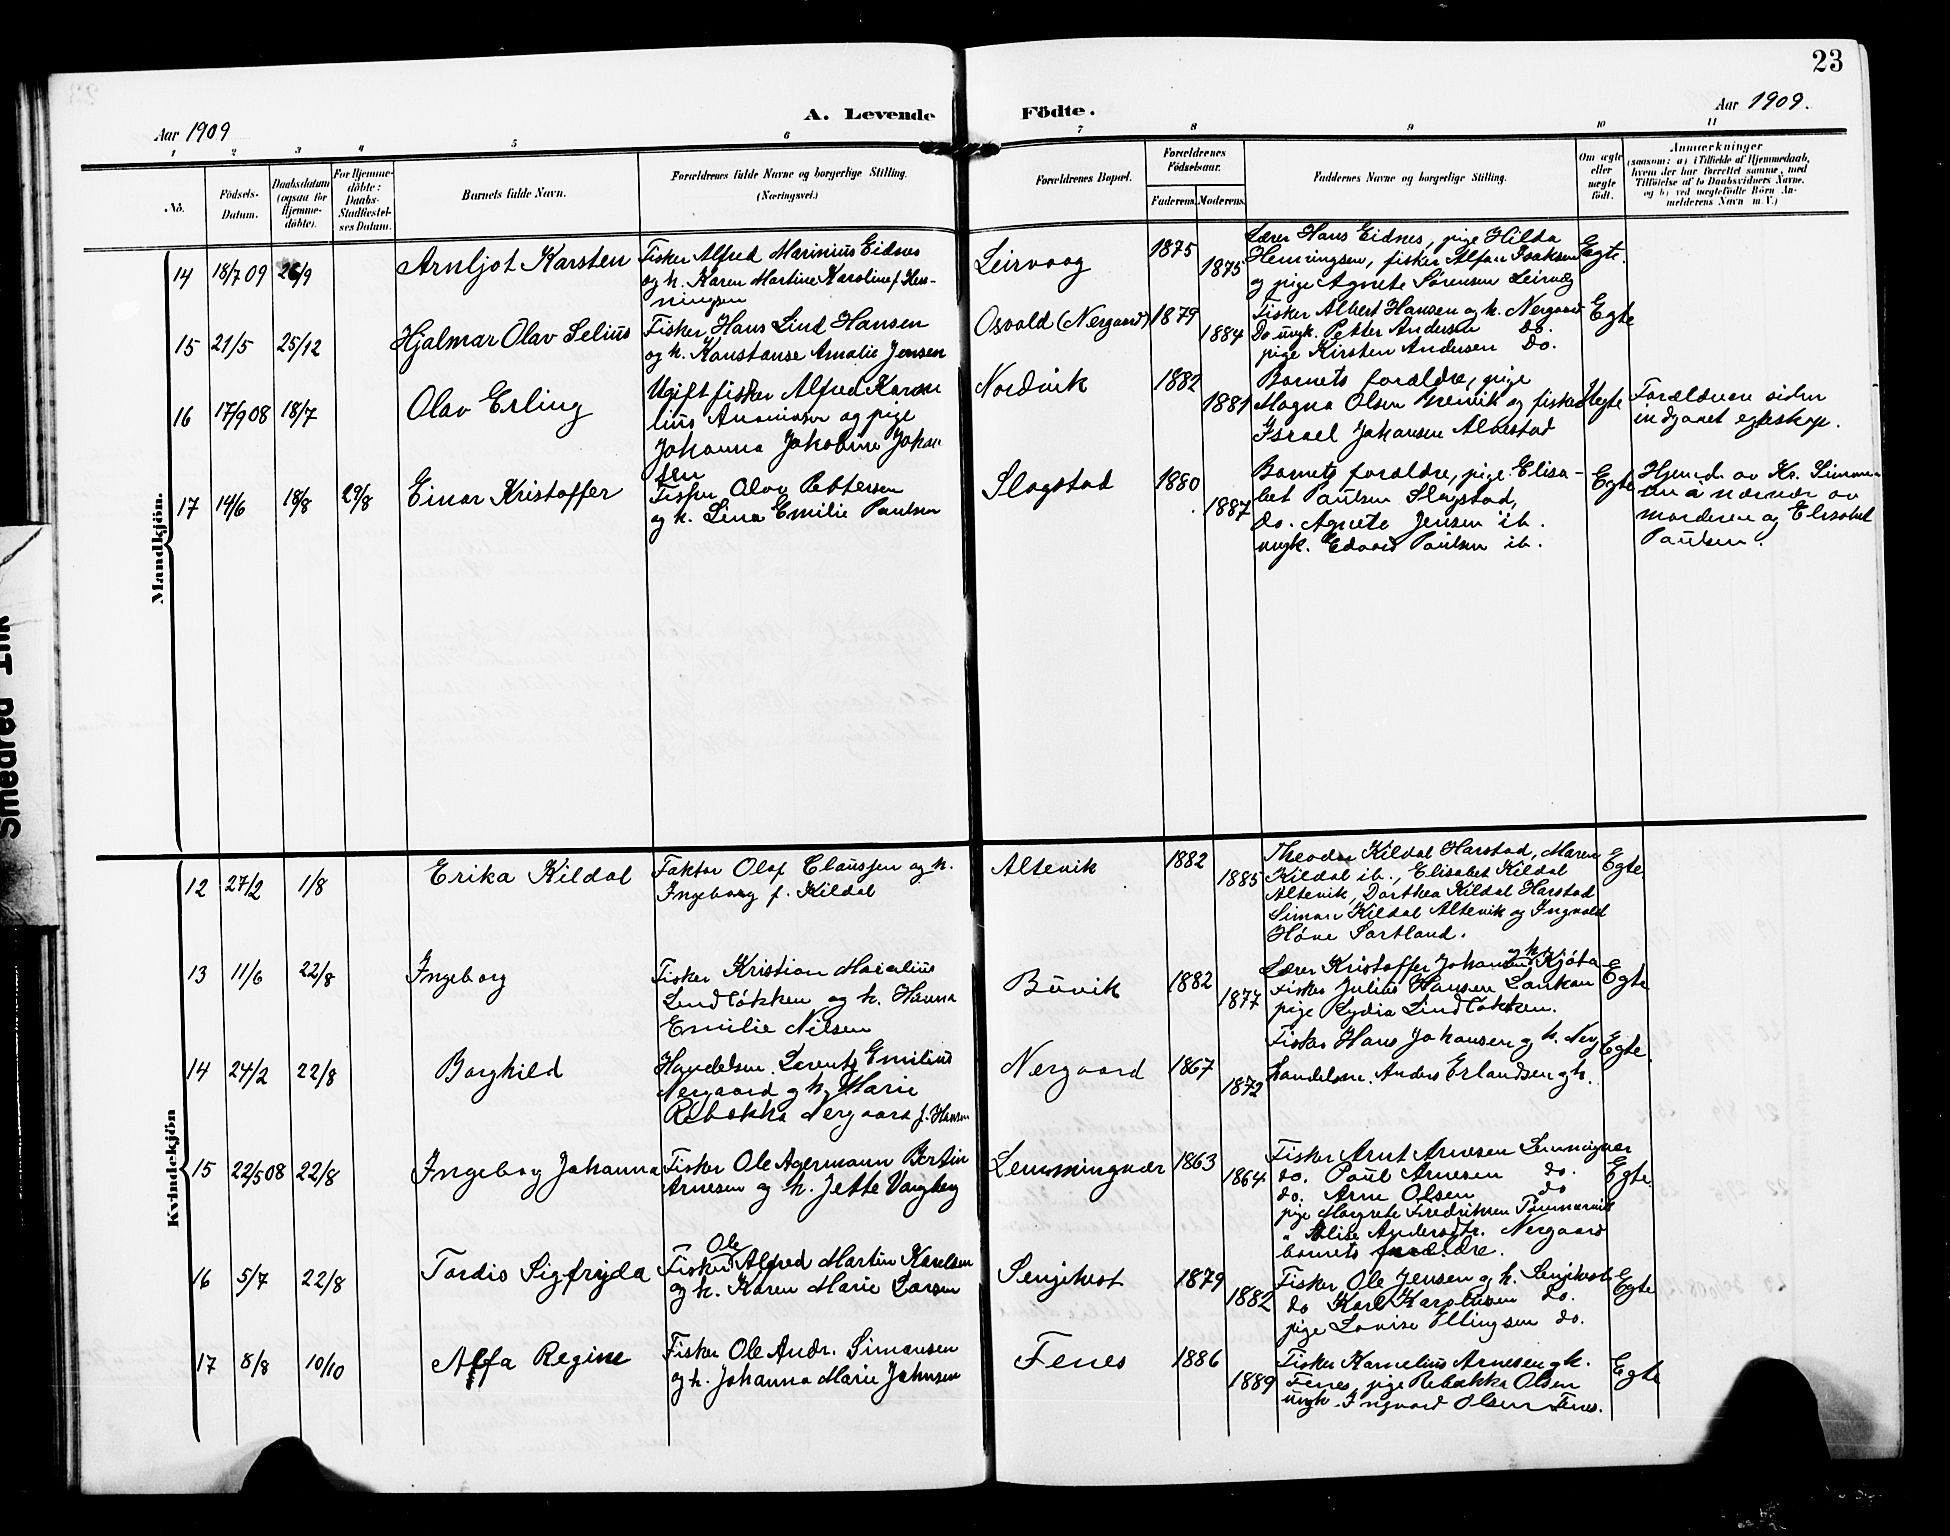 23
A. Levende Födte.
Aar 1909
Aar 1909.
1 2 3 4 5 6 7 8 9 10 11
No.
Födsels-Datum.
Daabsdatum (ogsaa for Hjemme-döbte).
For Hjemme-döbte: Daabs-Stadfæstel-ses Datum.
Barnets fulde Navn.
Forældrenes fulde Navne og borgerlige Stilling.
(Næringsvei.)
Forældrenes Bopæl.
Forældrenes Födselsaar.
Faderens. Moderens.
Faddernes Navne og borgerlige Stilling.
Om ægte eller uægte födt.
Anmærkninger
(saasom: a) i Tilfælde af Hjemmedaab, hvem der har forrettet samme, med Tilföielse af to Daabsvidners Navne, og b) ved uægtefödte Börn An-melderens Navn m. V.)
Mandkjön.
14 18/7 09 26/9 Arnljot Karsten
Fisker Alfred Marinius Eidnes
og h. Karen Martine Karoline f Hen-
ningsen
Leirvaag 1875 1875
Lærer Hans Eidnes, pige Hilda
Henningsen, fisker Alfon Isaksen
og pige Agnete Sørensen Leirvåg
Egte.
15 21/5 25/12 Hjalmar Olav Selius
Fisker Hans Lind Hansen
og h. Konstanse Amalie Jensen
Osvold (Nergaard) 1879 1884
Fisker Albert Hansen og h. Nergaard
Do ungk. Petter Andersen Do.
pige Kirsten Andersen Do.
Egte
16 17/9 08 18/7 Olav Erling
Ugift fisker Alfred Karne
lius Ananiassen og pige
Johanna Jakobine Johan
sen
Nordvik 1882 1881
Barnets forældre, pige
Magna Olsen Grenvik og fisker
Israel Johansen Alvestad
Uegte
Forældrene siden
indgaaet egteskap.
17 14/6 18/8 29/8 Einar Kristoffer
Fisker Olav Pettersen
og h. Lina Emilie Paulsen
Slagstad 1880 1887
Barnets forældre, pige Elisa-
bet Paulsen Slagstad,
do. Agnete Jensen ib.
ungk. Edvard Paulsen ib.
Egte
Hjemd. av Kr. Simon
sen i nærvær av
moderen og Elisabet
Paulsen.
Kvindekjön
12 27/2 1/8 Erika Kildal
Faktor Olaf Claussen og h.
Ingeborg f. Kildal
Altevik 1882 1885
Theodor Kildal Harstad, Maren
Kildal ib., Elisabet Kildal
Altevik, Dorthea Kildal Harstad
Simon Kildal Altevik og Ingvald
Høve Sortland.
Egte
13 11/6 22/8 Ingeborg
Fisker Kristian Marelius
Lind Løkken og h. Hanna
Emilie Nilsen
Buvik 1882 1877
Lærer Kristoffer Johansen og h. Kjøta
Fisker Julius Hansen Laukan
pige Lydia Lind Løkken.
Egte
14 24/2 22/8 Borghild
Handelsm. Lorents Emilius
Nergaard og h. Marie
Rebekka Nergaard f. Hansen
Nergaard 1867 1872
Fisker Hans Johansen og h. Nerg
Handelsm. Anders Erlandsen og h.
Egte
15 22/5 08 22/8 Ingeborg Johanna
Fisker Ole Agermann Bertin
Arnesen og h. Jette Vangberg
Lemmingvær 1863 1864
Fisker Arnt Arnesen Lemmingvær
do. Paul Arnesen do.
do. Arne Olsen do
pige Magrete Fredriksen Tømmervik
" Alise Andersdtr. Nergaard
barnets forældre.
Egte.
16 5/7 22/8 Tordis Sigfryda
Fisker Ole Alfred Martin Karelsen
og h. Karen Marie Larsen
Senjehest 1879 1882
Fisker Ole Jensen og h. Senjehest
do Karl Karolius­sen Do.
pige Lovise Ellingsen do.
Egte
17 8/8 10/10 Alfa Regine
Fisker Ole Andr. Simonsen
og h. Johanna Marie Johnsen
Fenes 1886 1889
Fisker Karnelius Arnesen og h.
Fenes, pige Rebekka Olsen
ungk. Ingvard Olsen Fenes.
Egte